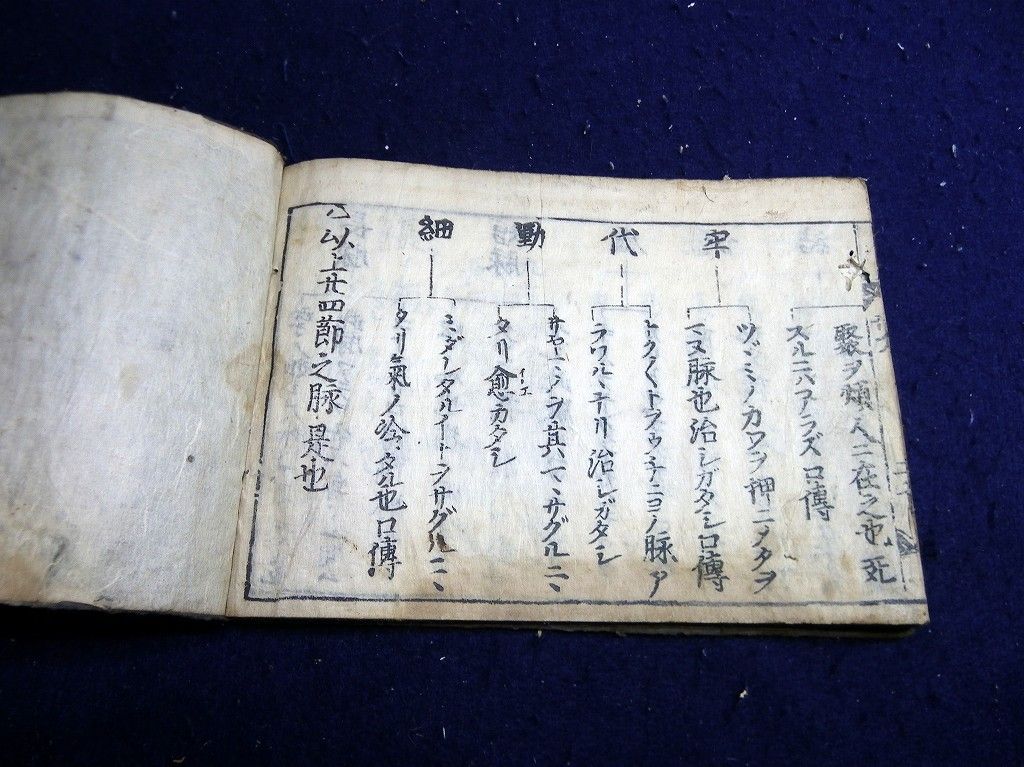 聚ヲ煩人ニ在之也死
スルニハアラズ口傳
牢
ツヾミノカワヲ押ニタタヲ
マヌ脉也治シガタシ口傳
代
トク〱トウツウチニヨノ脉ア
ラワルヽナリ治シガタシ
動
サヤ ミヲ其マヽサグルニヽ
タリ愈カタシ
イエ
細
ミダレタルイトヲサグルニヽ
タリ氣ノ冷タル也口傳
以上廿四節之脉是也